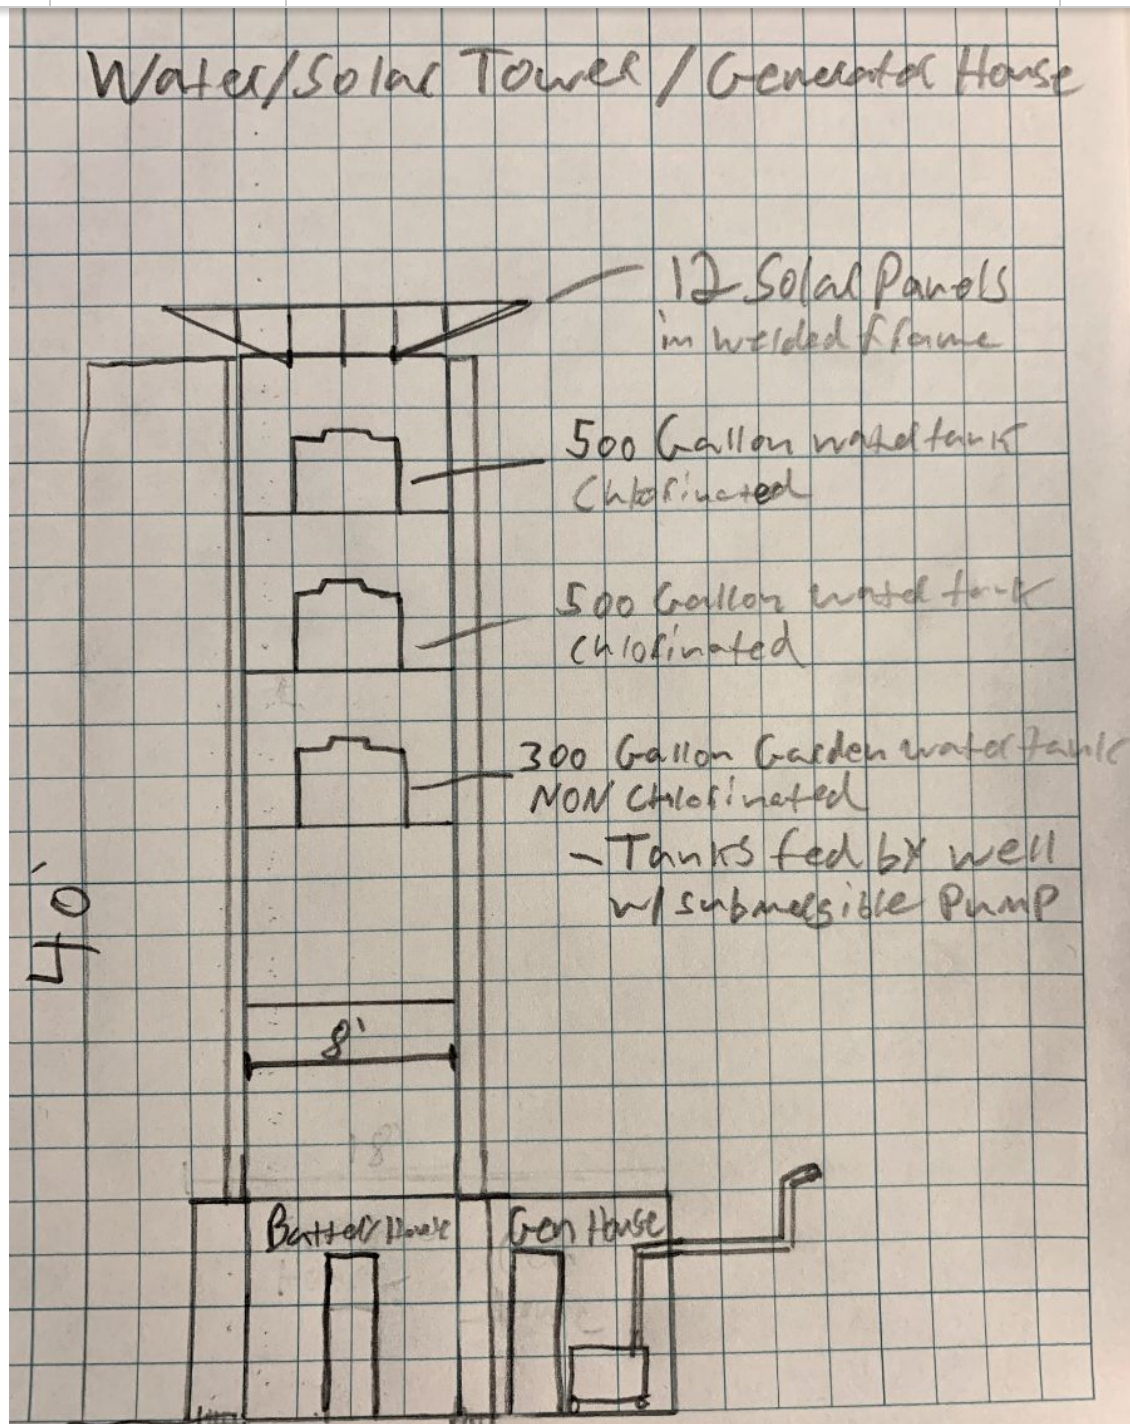 Water/Solar Tower / Generator House
12 Solar Panels
in welded frame
500 Gallon water tank
Chlorinated
500 Gallon water tank
Chlorinated
300 Gallon Garden water tank
NON Chlorinated
- Tanks fed by well
w/ submersible Pump
40'
8'
18'
Battery House
Gen House